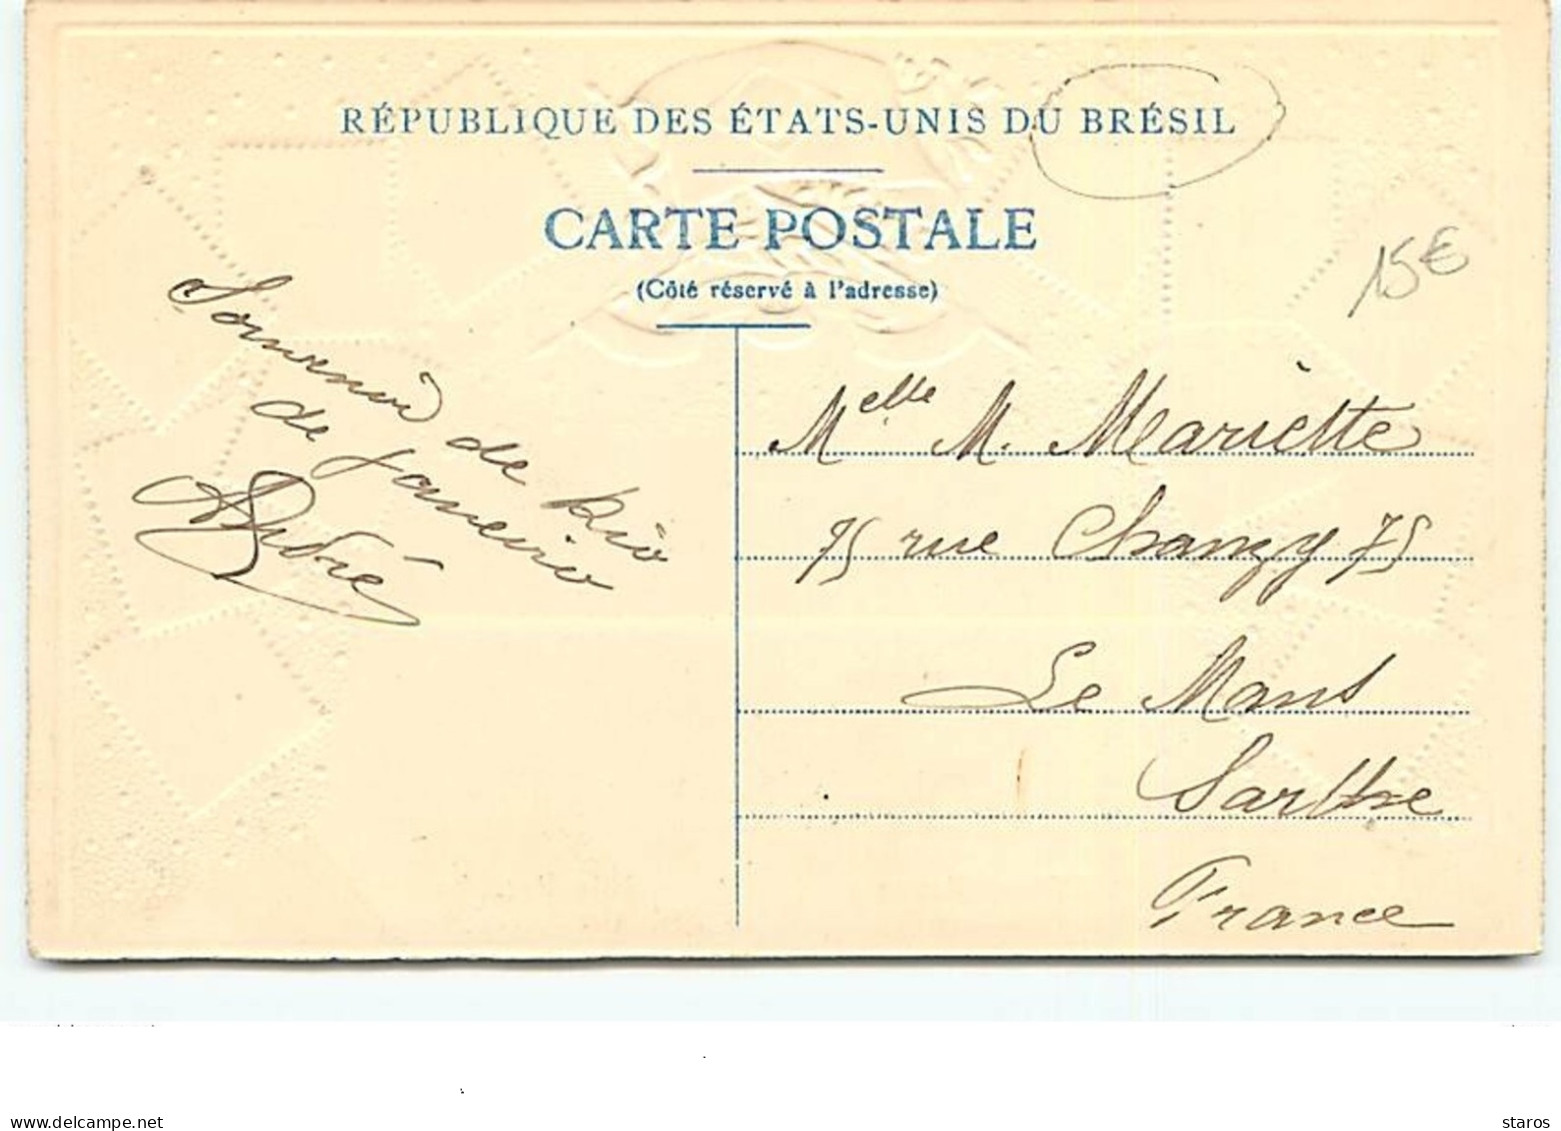 RÉPUBLIQUE DES ÉTATS-UNIS DU BRÉSIL
CARTE POSTALE
(Côté réservé à l'adresse)
15€
Souvenir de Rio
de Janeiro
André
Melle M. Mariette
75 rue Chanzy 75
Le Mans
Sarthe
France
delcampe.net
staros